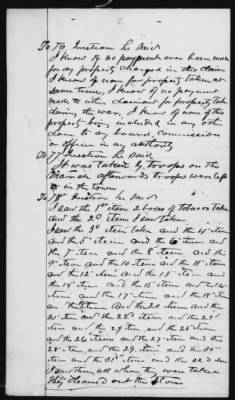 To 76 Question he said
I know of no payment ever been made
for any property charged in this claim
I know of none for property taken at
same time, I know of no payment
made to either claimant for property taken
during the war, I know of none of this
property being included in any other
claim to any board, commission
or officer in any authority
To 77 Question he said
It was taken by troops on the
March afterwards troops were left
in the town
To 78 Question he said
I saw the 1st item 2 boxes of tobacco taken
and the 2d item I saw taken
I saw the 3d item taken and the 4th item
and the 5th item and the 6th item and
the 7th item and the 8th item and the
9th item and the 10th item and the 11th item
and the 12th item and the 13th item and
the 14th item and the 15th item and the 16th
item and the 17th item and the 18th item
and the 19th item and the 20th item and the
21st item and the 22d item and the 23d
item and the 24th item and the 25th item
and the 26th item and the 27th item and the
28th item and the 29th item and the 30th
item and the 31st item and the 32d item
I saw them all when they were taken
They cleaned out the store